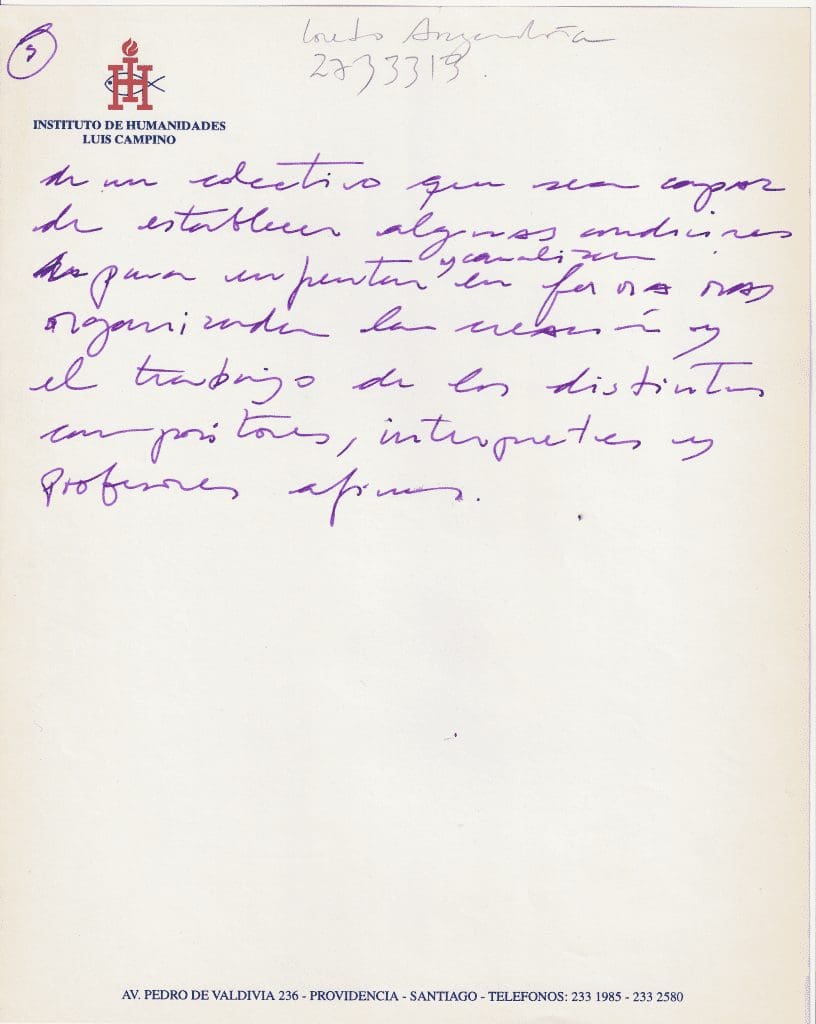 5
Loreto
2733313.
INSTITUTO DE HUMANIDADES
LUIS CAMPINO
de un colectivo que sea capaz
de establecer algunas condiciones
y canalizar
para en forma mas
organizada la creación y
el trabajo de los distintos
compositores, interpretes y
profesores afines.
AV. PEDRO DE VALDIVIA 236 - PROVIDENCIA - SANTIAGO - TELEFONOS: 233 1985 - 233 2580